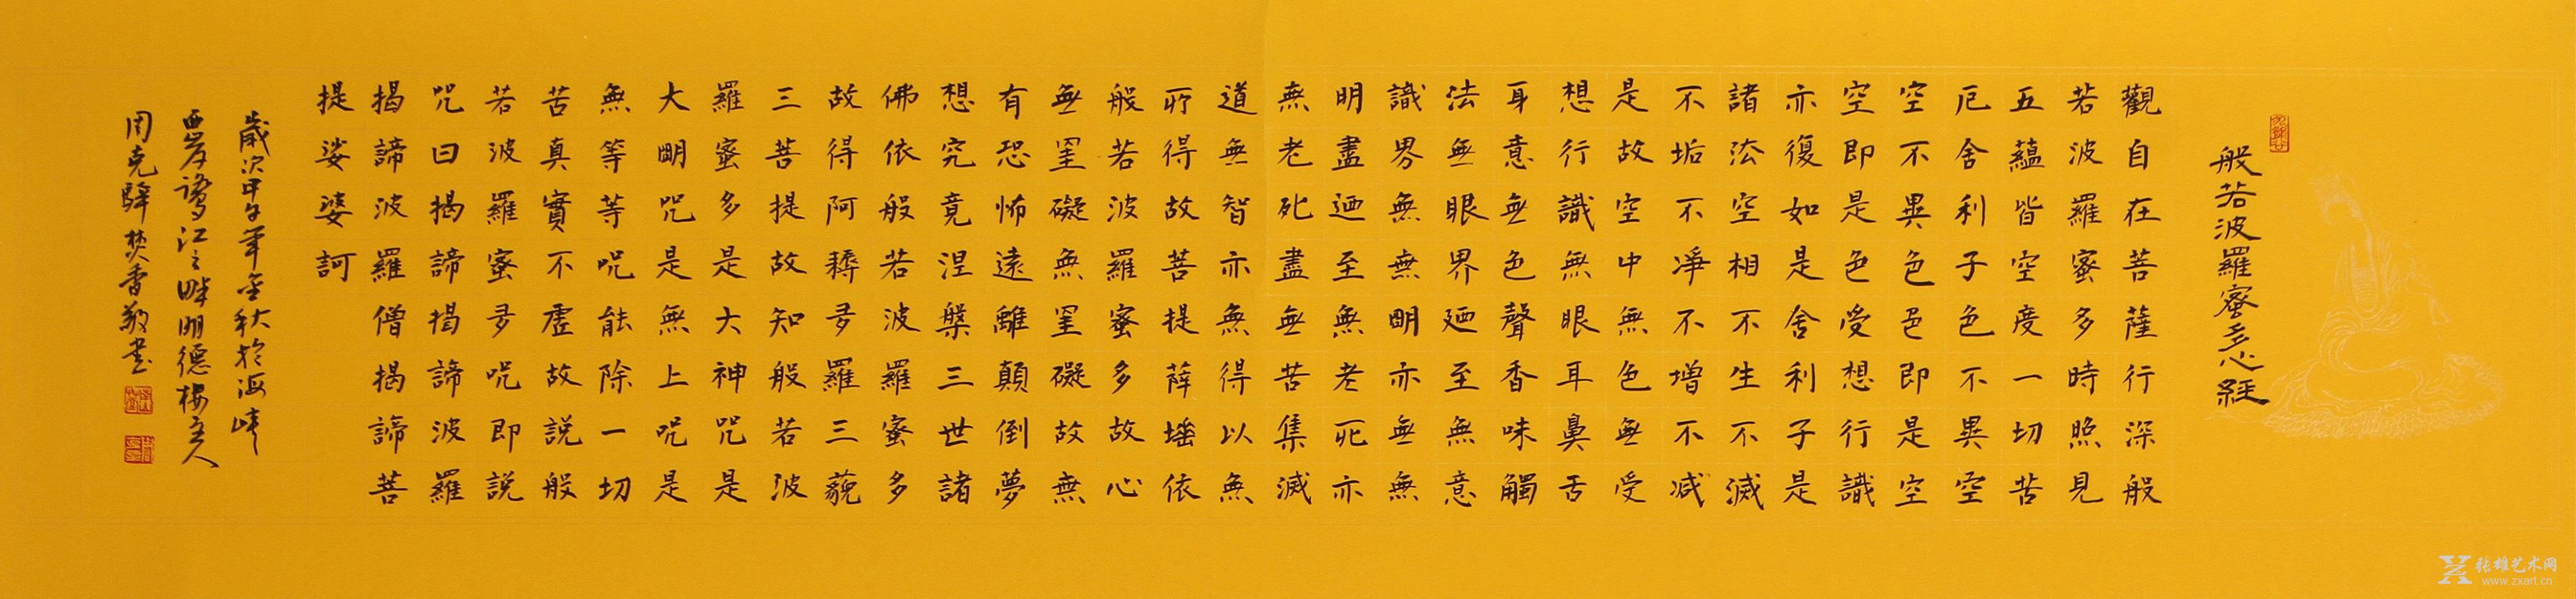 般若波羅蜜多心經
觀自在菩薩行深般
若波羅蜜多時照見
五蘊皆空度一切苦
厄舍利子色不異空
空不異色色即是空
空即是色受想行識
亦復如是舍利子是
諸法空相不生不滅
不垢不淨不增不减
是故空中無色無受
想行識無眼耳鼻舌
身意無色聲香味觸
法無眼界廼至無意
識界無無明亦無無
明盡廼至無老死亦
無老死盡無苦集滅
道無智亦無得以無
所得故菩提薩埵依
般若波羅蜜多故心
無罣礙無罣礙故無
有恐怖遠離顛倒夢
想究竟涅槃三世諸
佛依般若波羅蜜多
故得阿耨多羅三藐
三菩提故知般若波
羅蜜多是大神咒是
大明咒是無上咒是
無等等咒能除一切
苦真實不虛故説般
若波羅蜜多咒即説
咒曰揭諦揭諦波羅
揭諦波羅僧揭諦菩
提娑婆訶
歲次甲午年金秋於海峽
西岸鷺江之畔明德樓主人
周克驛焚香敬書
张雄艺术网
www.zxart.cn